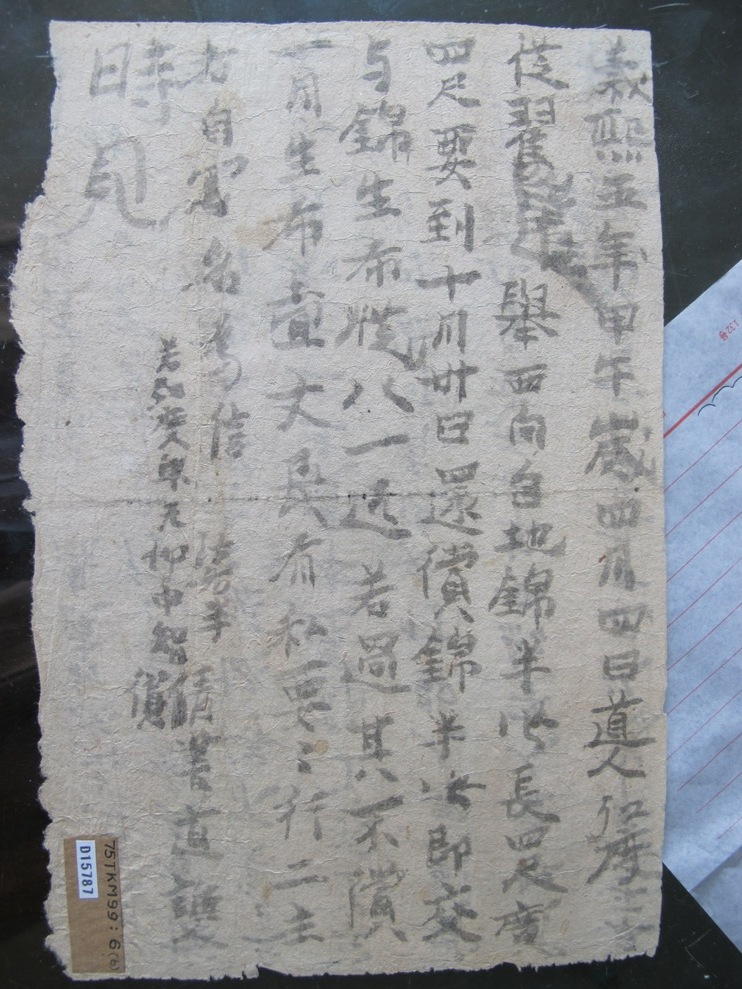 義熙五年甲午歲四月四日道人弘度
從翟紹遠舉西向白地錦半張長四尺廣
四尺要到十月卅日還償錦半張即交
与錦生布縱八一匹若過其不償
一月生布壹丈民有私要〻行二主
各自署名為信 倩書道護
若弘度身無仰申智償
時見
75TKM99:6(b)
D15787